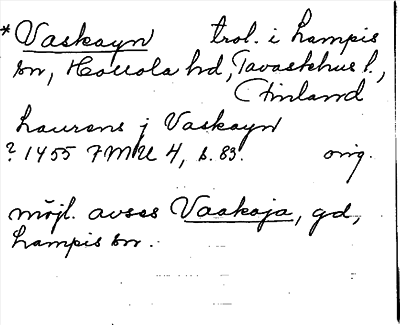 *Vaskayn trol. i Lampis
sn, Hollola hd, Tavastehus l.,
(Finland
Laurens j Vaskayn
? 1455 FMU 4, s. 83. orig.
möjl. avses Vaakoja, gd,
Lampis sn.